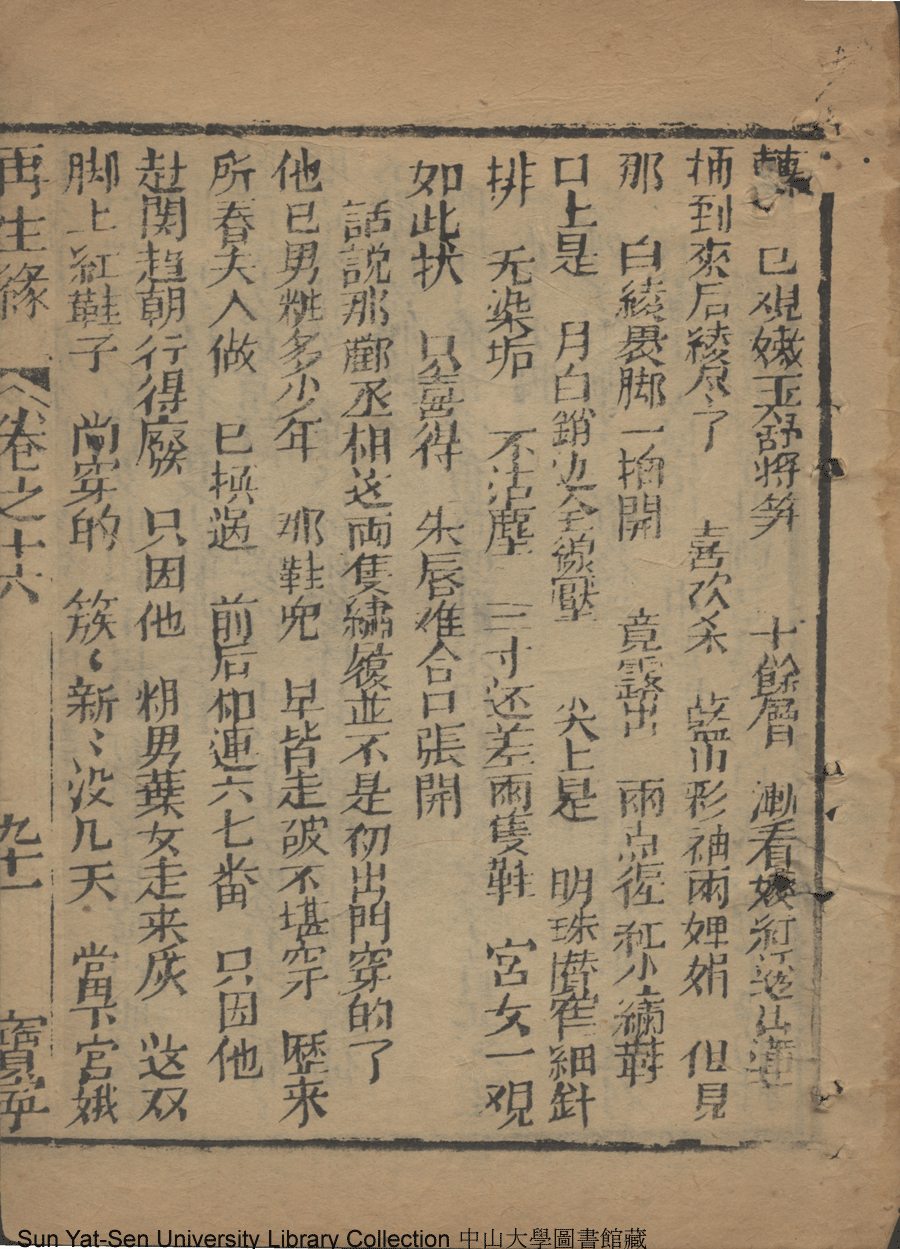 已观嫩玉舒将笋 十餘層 漸看嫩紅
抽到來后綾尽了 喜欢杀 藍山彩袖兩婢娟 但見
那 白綾褁脚一抽開 竟露出 兩点猩紅小繡鞋
口上是 月白銷边金線壓 尖上是 明珠攢雀細針
排 无染垢 不沾塵 三寸还差兩隻鞋 宮女一观
如此状 只喜得 朱唇难合口張開
話說那酈丞相这両隻繡履並不是初出門穿的了
他已男粧多少年 那鞋兜 早皆走破不堪穿 歷来
所春夫人做 已換過 前后却連六七番 只因他
赴関趋朝行得廢 只因他 粧男葉女走来庻 这双
脚上紅鞋子 尚穿的 簇〻新〻没几天 當下宮娥
再生縁 卷之十六 九十一 寳寧
Sun Yat-Sen University Library Collection 中山大學圖書館藏